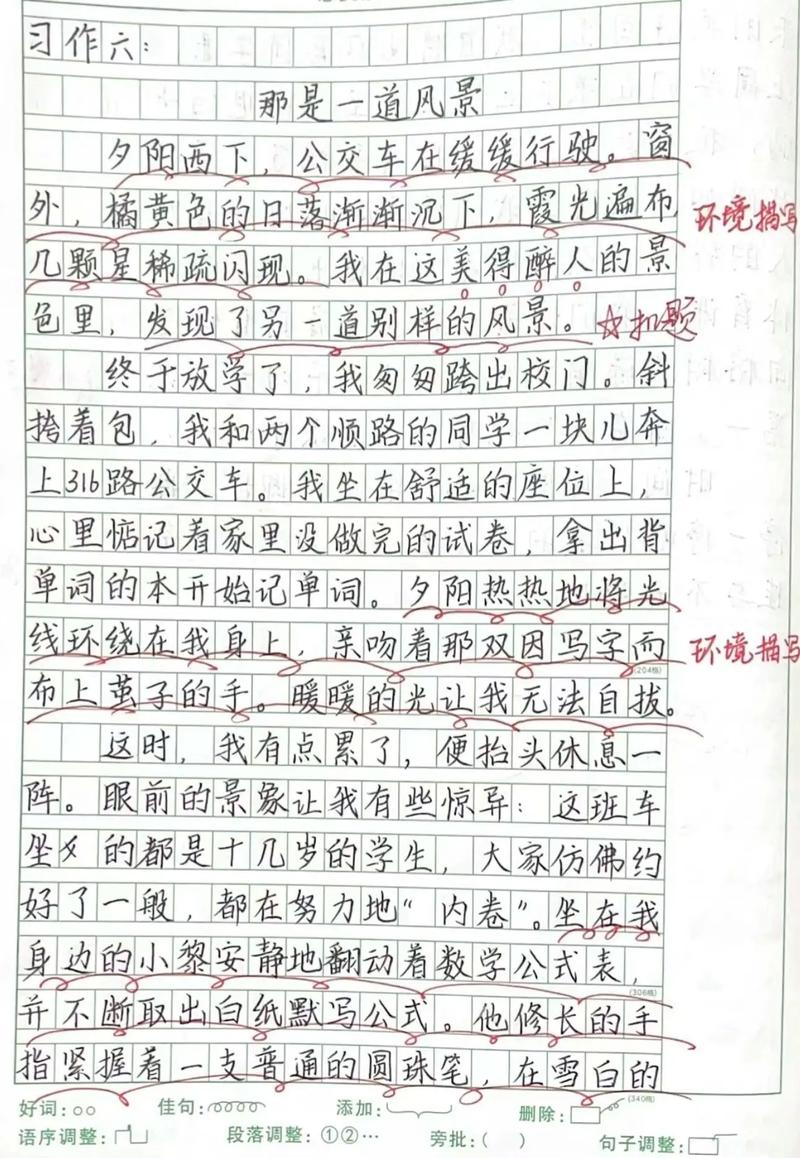 习作六：
那是一道风景
夕阳西下，公交车在缓缓行驶。窗
外，橘黄色的日落渐渐沉下，霞光遍布， 环境描写
几颗星稀疏闪现。我在这美得醉人的景
色里，发现了另一道别样的风景。 ☆扣题
终于放学了，我匆匆跨出校门。斜
挎着包，我和两个顺路的同学一块儿奔
上316路公交车。我坐在舒适的座位上，
心里惦记着家里没做完的试卷，拿出背
单词的本开始记单词。夕阳热热地将光
线环绕在我身上，亲吻着那双因写字而 环境描写
(204格)
布上茧子的手。暖暖的光让我无法自拔。
这时，我有点累了，便抬头休息一
阵。眼前的景象让我有些惊异：这班车
坐 的都是十几岁的学生，大家仿佛约
好了一般，都在努力地“内卷”。坐在我
身边的小黎安静地翻动着数学公式表，
(306格)
并不断取出白纸默写公式。他修长的手
指紧握着一支普通的圆珠笔，在雪白的
(340格)
好词：○○ 佳句： 添加： 删除：
语序调整： 段落调整：①②… 旁批：( ) 句子调整：